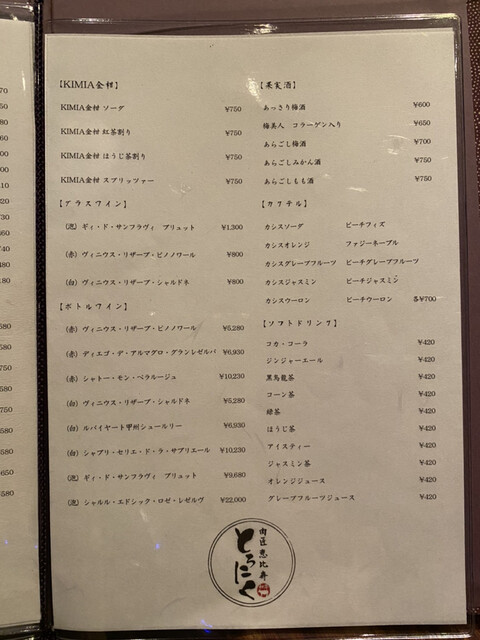 【KIMIA金柑】
KIMIA金柑 ソーダ ¥750
KIMIA金柑 紅茶割り ¥750
KIMIA金柑 ほうじ茶割り ¥750
KIMIA金柑 スプリッツァー ¥750
【グラスワイン】
(泡) ギィ・ド・サンフラヴィ ブリュット ¥1,300
(赤) ヴィニウス・リザーブ・ピノノワール ¥800
(白) ヴィニウス・リザーブ・シャルドネ ¥800
【ボトルワイン】
(赤) ヴィニウス・リザーブ・ピノノワール ¥5,280
(赤) ディエゴ・デ・アルマグロ・グランレゼルバ ¥6,930
(赤) シャトー・モン・ペラルージュ ¥10,230
(白) ヴィニウス・リザーブ・シャルドネ ¥5,280
(白) ルバイヤート甲州シュールリー ¥6,930
(白) シャブリ・セリエ・ド・ラ・サブリエール ¥10,230
(泡) ギィ・ド・サンフラヴィ ブリュット ¥9,680
(泡) シャルル・エドシック・ロゼ・レゼルヴ ¥22,000
【果実酒】
あっさり梅酒 ¥600
梅美人 コラーゲン入り ¥650
あらごし梅酒 ¥700
あらごしみかん酒 ¥750
あらごしもも酒 ¥750
【カクテル】
カシスソーダ ピーチフィズ
カシスオレンジ ファジーネーブル
カシスグレープフルーツ ピーチグレープフルーツ
カシスジャスミン ピーチジャスミン
カシスウーロン ピーチウーロン 各¥700
【ソフトドリンク】
コカ・コーラ ¥420
ジンジャーエール ¥420
黒烏龍茶 ¥420
コーン茶 ¥420
緑茶 ¥420
ほうじ茶 ¥420
アイスティー ¥420
ジャスミン茶 ¥420
オレンジジュース ¥420
グレープフルーツジュース ¥420
肉匠恵比寿
とろにく